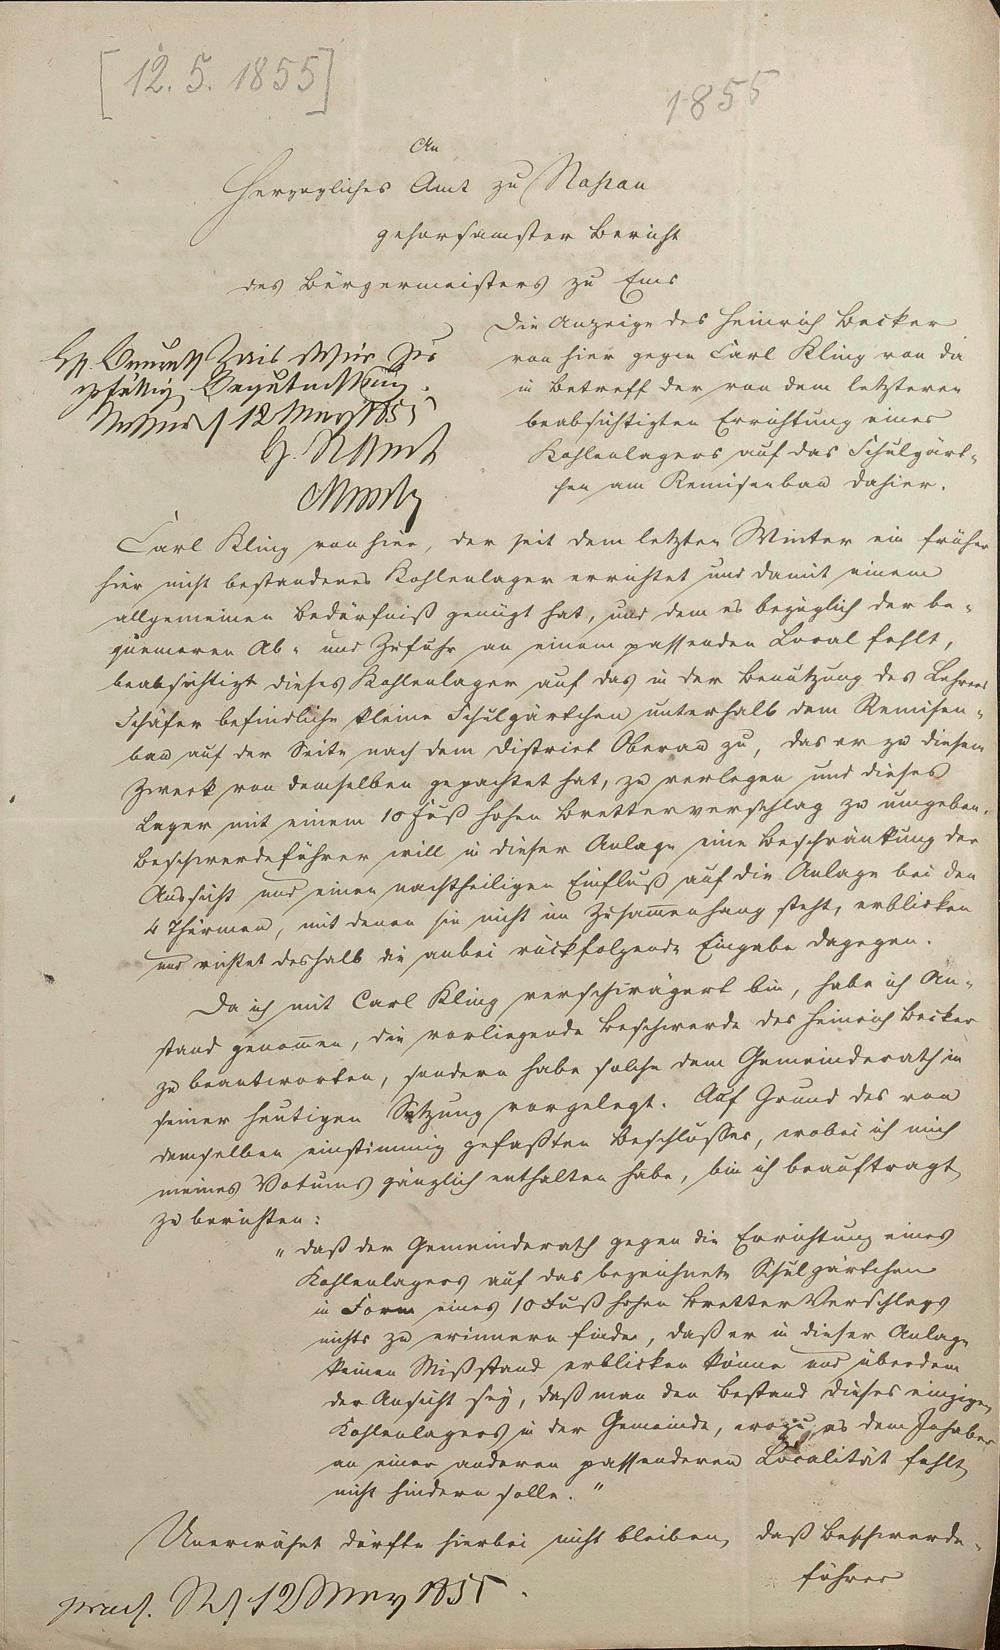 [12. 5. 1855]
1855
An
Herzogliches Amt zu Nassau
gehorsamster Bericht
des Bürgermeisters zu Ems
Die Anzeige des Heinrich Becker
von hier gegen Carl Kling von da
in Betreff der von dem letzteren
beabsichtigten Errichtung eines
Kohlenlagers auf das Schulgärt-
chen am Remisenbau dahier.
12 May 1855
Carl Kling von hier, der seit dem letzten Winter ein früher
hier nicht bestandenes Kohlenlager errichtet und damit einem
allgemeinen Bedürfniß genügt hat, und dem es bezüglich der be-
quemeren Ab- und Zufuhr an einem passenden Local fehlt,
beabsichtigt dieses Kohlenlager auf das in der Benutzung des Lehrers
Schäfer befindliche kleine Schulgärtchen unterhalb dem Remisen-
bau auf der Seite nach dem District Oberau zu, das er zu diesem
Zweck von demselben gepachtet hat, zu verlegen und dieses
Lager mit einem 10 Fuß hohen Bretterverschlag zu umgeben.
Beschwerdeführer will in dieser Anlage eine Beschränkung der
Aussicht und einen nachtheiligen Einfluß auf die Anlage bei den
4 Thürmen, mit denen sie nicht im Zusammenhang steht, erblicken
und richtet deshalb die anbei rückfolgende Eingabe dagegen.
Da ich mit Carl Kling verschwägert bin, habe ich An-
stand genommen, die vorliegende Beschwerde des Heinrich Becker
zu beantworten, sondern habe solche dem Gemeinderath in
seiner heutigen Sitzung vorgelegt. Auf Grund des von
demselben einstimmig gefaßten Beschlußes, wobei ich mich
meines Votums gänzlich enthalten habe, bin ich beauftragt
zu berichten:
„daß der Gemeinderath gegen die Errichtung eines
Kohlenlagers auf das bezeichnete Schulgärtchen
in Form eines 10 Fuß hohen Bretter Verschlags
nichts zu erinnern finde, daß er in dieser Anlage
keinen Mißstand erblicken könne und überdem
der Ansicht sey, daß man den Bestand dieses einzigen
Kohlenlagers in der Gemeinde, wozu es dem Inhaber
an einer anderen passenderen Localität fehlt,
nicht hindern solle."
Unerwähnt dürfte hierbei nicht bleiben, daß Beschwerde-
führer
praes. 12 May 1855.